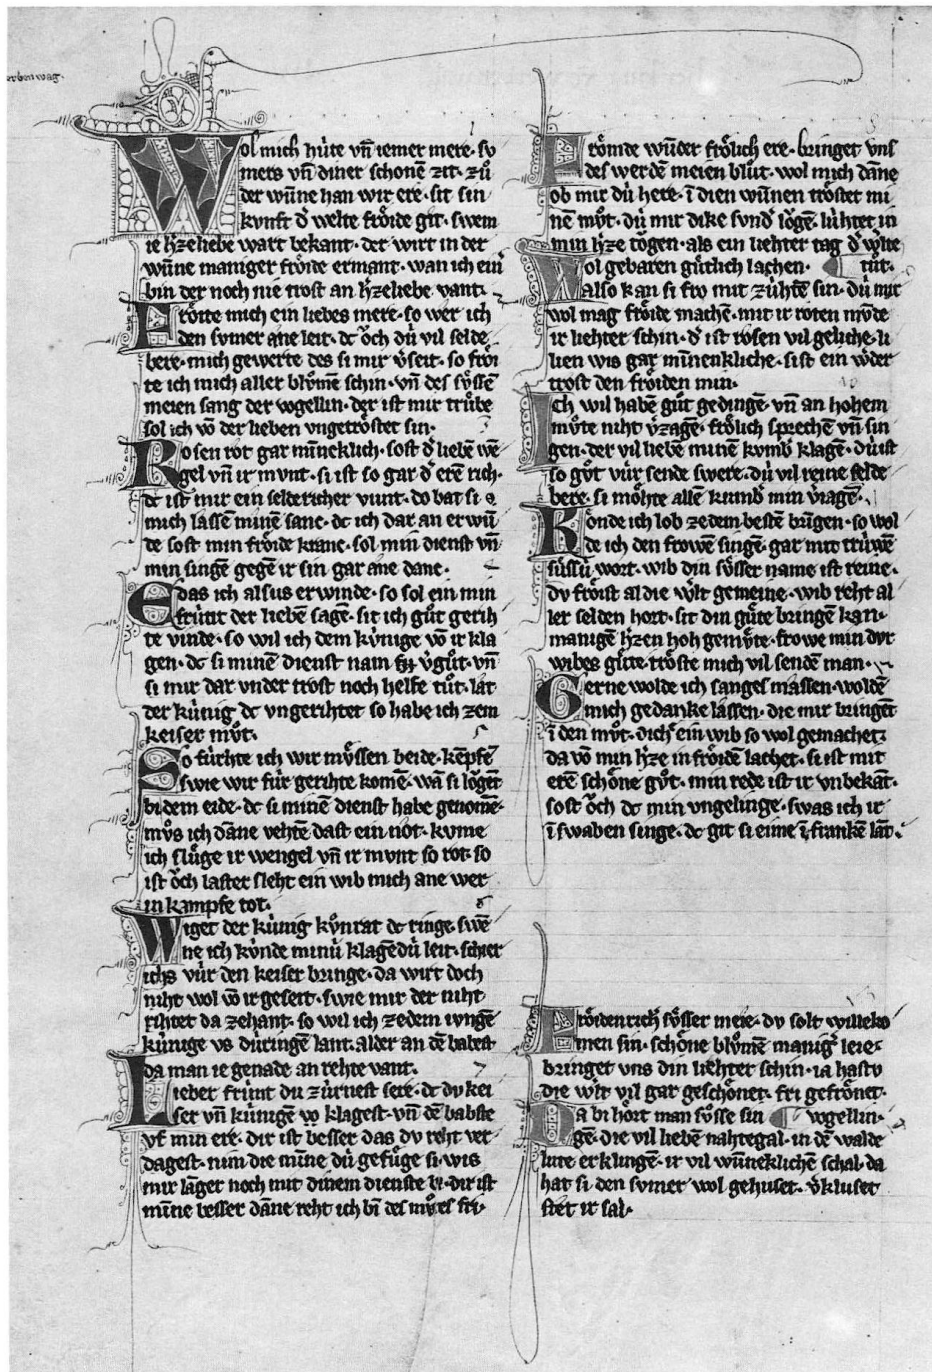 erbenwag.
Wol mich hùte vn̄ iemer mere. sv
mers vn̄ diner schonē zit. zů
der wūne han wir ere. sit sin
kvnft d̓ welte frỏide git. swem
ie h̓zeliebe wart bekant. der wirt in der
wūne maniger frỏide ermant. wan ich
bin der noch nie trost an h̓zeliebe vant.
Frỏite mich ein liebes mere. so wer ich
den svmer ane leit. dc ỏch dù vil selde
bere. mich gewerte des si mir v̓seit. so frỏi
te ich mich aller blůmē schin. vn̄ des sůssē
meien sang der vogellin. der ist mir trůbe
sol ich vō der lieben vngetrỏstet sin.
Rosen rot gar mīneklich. sost d̓ liebē wē
gel vn̄ ir mvnt. si ist so gar d̓ erē rich.
dc ist mir ein seldericher vunt. do bat si
mich lassē minē sanc. dc ich dar an erwū
de sost min frỏide kranc. sol min dienst vn̄
min singē gegē ir sin gar ane danc.
Edas ich alsus erwinde. so sol ein min
frùnt der liebē sagē. sit ich gůt gerih
te vinde. so wil ich dem kùnige vō ir kla
gen. dc si minē dienst nam v̓gůt. vn̄
si mir dar vnder trost noch helfe tůt. lat
der kùnig dc vngerihtet so habe ich zem
keiser můt.
So fùrhte ich wir mùssen beide. kēpfē
swie wir fùr gerihte komē. wā si lỏgēt
bi dem eide. dc si minē dienst habe genomē.
můs ich dāne vehtē dast ein not. kvme
ich slůge ir wengel vn̄ ir mvnt so rot. so
ist ỏch laster sleht ein wib mich ane wer
in kampfe tot.
Wiget der kùnig kůnrat dc ringe. swē
ne ich kùnde minù klagēdù leit. schier
ichs vùr den keiser bringe. da wirt doch
niht wol vō ir geseit. swie mir der niht
rihtet da zehant. so wil ich zedem ivngē
kùnige vs dùringē lant. alder an dē babest
da man ie genade an rehte vant.
Lieber frùnt du zùrnest sere. dc dv kei
ser vn̄ kùnigē vō klagest. vn̄ dē babste
vf min ere. dir ist besser das dv reht ver
dagest. nim die mīne dù gefùge si. wis
mir lāger noch mit dinem dienste bi. dir ist
mīne besser dāne reht ich bī des můtes fri.
Frỏmde wūder frỏlich ere. bringet vns
des werdē meien blůt. wol mich dāne
ob mir dù here. ī dien wūnen trỏstet mi
nē můt. dù mir dike svnd̓ lỏgē. lùhtet in
min h̓ze tỏgen. als ein liehter tag d̓ w̓lte
Wol gebaren gůtlich lachen. tůt.
also kan si fro mit zùhtē sin. dù mir
wol mag frỏide machē. mit ir roten mvde
ir liehter schin. d̓ ist rosen vil geliche. li
lien wis gar mīnenkliche. sist ein w̓der
trost den frỏiden min.
Ich wil habē gůt gedingē. vn̄ an hohem
můte niht v̓zagē. frỏlich sprechē vn̄ sin
gen. der vil liebē minē kvmb̓ klagē. dù ist
so gůt vùr sende swere. dù vil reine selde
bere. si mỏhte allē kumb̓ min v̓iagē.
Kỏnde ich lob zedem bestē brīgen. so wol
de ich den frowē singē. gar mit trùwē
sùssù wort. wib din sůsser name ist reine.
dv frỏist al die w̓lt gemeine. wib reht al
ler selden hort. sit din gůte bringen kan.
manigē h̓zen hoh gemůte. frowe min dvr
wibes gůte. trỏste mich vil sendē man.
Gerne wolde ich sanges massen. woldē
mich gedanke lassen. die mir bringēt
ī den můt. dich ein wib so wol gemachet.
da vō min h̓ze in frỏidē lachet. si ist mit
erē schỏne gůt. min rede ist ir vnbekāt.
sost ỏch dc min vngelinge. swas ich ir
ī swaben singe. dc git si eime ī frankē lāt.
Frỏidenrich sůsser meie. dv solt willeko
men sin. schỏne blůmē manig̓ leie
bringet vns din liehter schin. ia hastv
die w̓lt vil gar geschỏnet. fri gefrỏnet.
Da bi hort man sůsse sin vogellin.
gē. die vil liebē nahtegal. in dē walde
lute erklingē. ir vil wūneklichē schal. da
hat si den svmer wol gehuset. v̓kluset
stet ir sal.